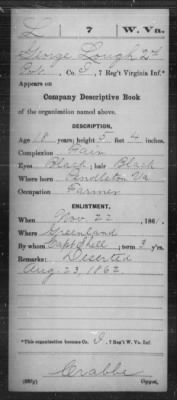 L 7 W. Va.
George Lough 2d
Pvt., Co. I, 7 Reg't Virginia Inf.*
Appears on
Company Descriptive Book
of the organization named above.
DESCRIPTION.
Age 18 years; height 5 feet 4 inches.
Complexion Fair
Eyes Black; hair Black
Where born Pendleton Va
Occupation Farmer
ENLISTMENT.
When Nov. 22, 186
Where Greenland
By whom Capt Shell; term 3 y'rs.
Remarks: Deserted
Aug. 23, 1862.
*This organization became Co. I, 7 Reg't W. Va. Inf.
Crabbe
Copyist.